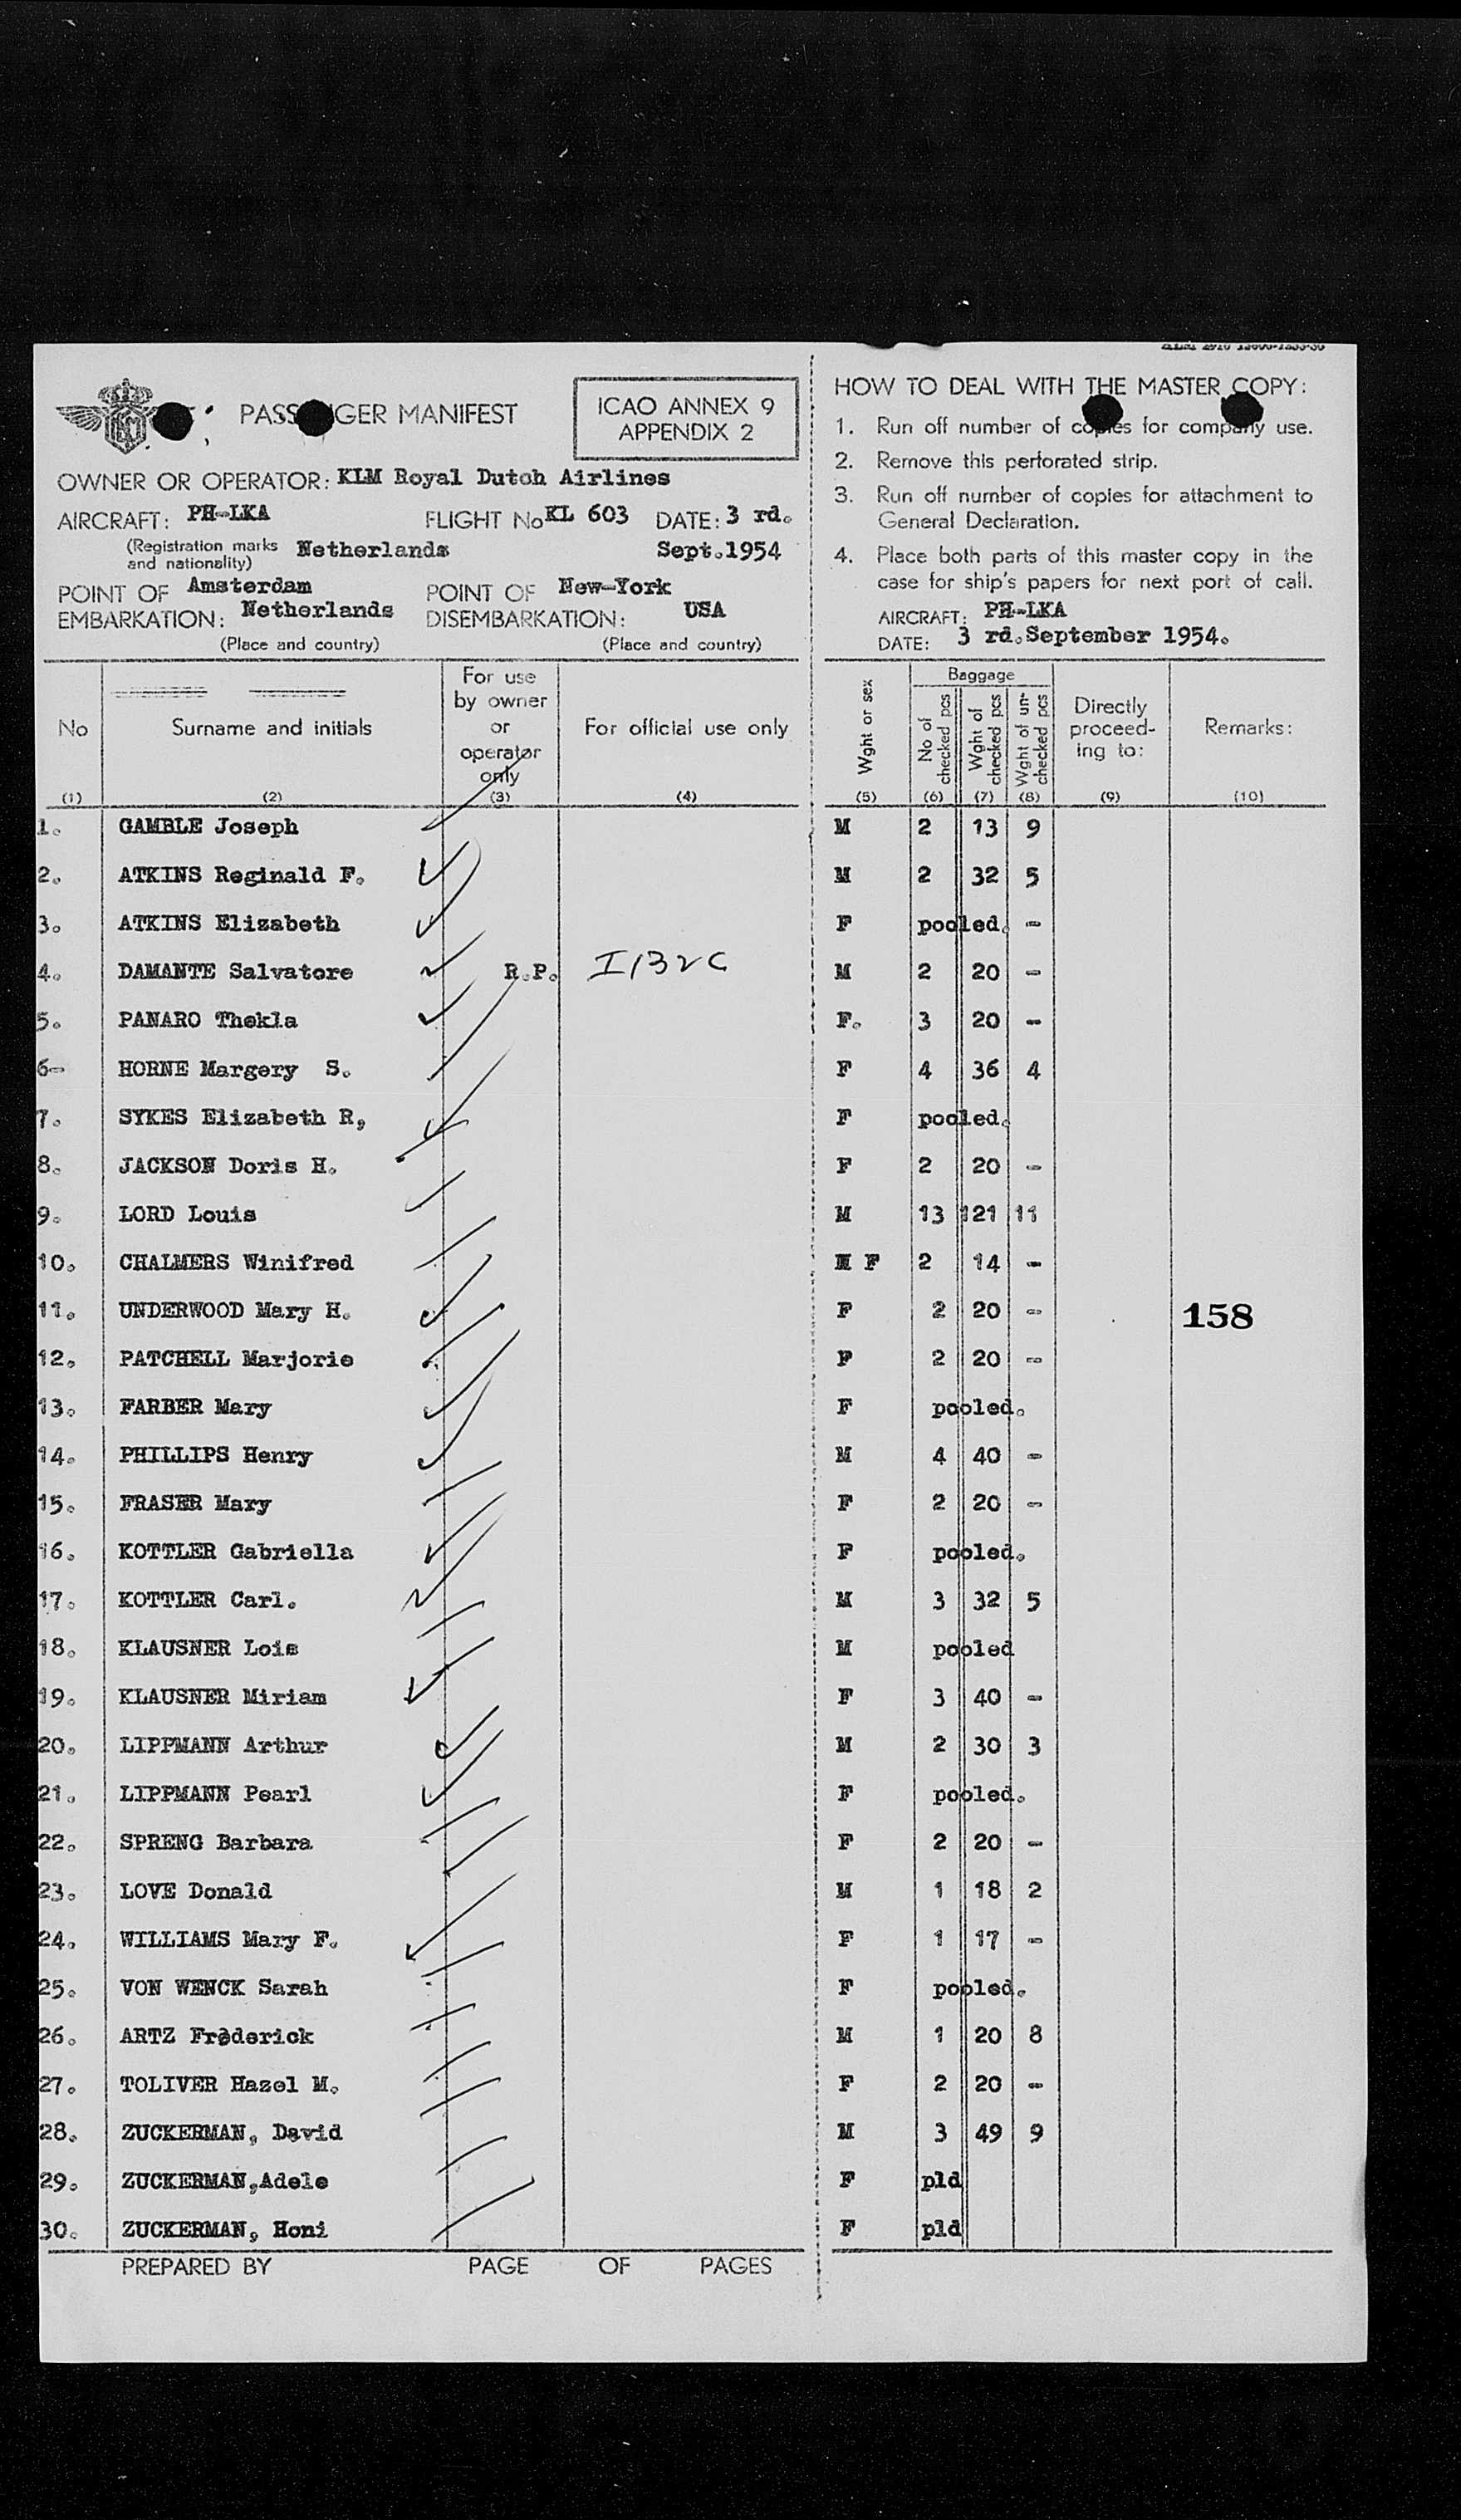 PASSENGER MANIFEST
ICAO ANNEX 9
APPENDIX 2
OWNER OR OPERATOR: KLM Royal Dutch Airlines
AIRCRAFT: PH-LKA FLIGHT No KL 603 DATE: 3 rd.
(Registration marks and nationality) Netherlands Sept.1954
POINT OF EMBARKATION: Amsterdam Netherlands
POINT OF DISEMBARKATION: New-York USA
(Place and country) (Place and country)
HOW TO DEAL WITH THE MASTER COPY:
1. Run off number of copies for company use.
2. Remove this perforated strip.
3. Run off number of copies for attachment to
General Declaration.
4. Place both parts of this master copy in the
case for ship's papers for next port of call.
AIRCRAFT: PH-LKA
DATE: 3 rd.September 1954.
No Surname and initials For use by owner or operator only For official use only Wght or sex Baggage No of checked pcs Wght of checked pcs Wght of un-checked pcs Directly proceed-ing to: Remarks:
(1) (2) (3) (4) (5) (6) (7) (8) (9) (10)
1. GAMBLE Joseph M 2 13 9
2. ATKINS Reginald F. M 2 32 5
3. ATKINS Elizabeth F pooled. -
4. DAMANTE Salvatore R.P. I132C M 2 20 -
5. PANARO Thekla F. 3 20 -
6- HORNE Margery S. F 4 36 4
7. SYKES Elizabeth R, F pooled.
8. JACKSON Doris H. F 2 20 -
9. LORD Louis M 13 121 11
10. CHALMERS Winifred F 2 14 -
11. UNDERWOOD Mary H. F 2 20 - 158
12. PATCHELL Marjorie F 2 20 -
13. FARBER Mary F pooled.
14. PHILLIPS Henry M 4 40 -
15. FRASER Mary F 2 20 -
16. KOTTLER Gabriella F pooled.
17. KOTTLER Carl. M 3 32 5
18. KLAUSNER Lois M pooled
19. KLAUSNER Miriam F 3 40 -
20. LIPPMANN Arthur M 2 30 3
21. LIPPMANN Pearl F pooled.
22. SPRENG Barbara F 2 20 -
23. LOVE Donald M 1 18 2
24. WILLIAMS Mary F. F 1 17 -
25. VON WENCK Sarah F pooled.
26. ARTZ Frederick M 1 20 8
27. TOLIVER Hazel M. F 2 20 -
28. ZUCKERMAN, David M 3 49 9
29. ZUCKERMAN,Adele F pld
30. ZUCKERMAN, Honi F pld
PREPARED BY PAGE OF PAGES